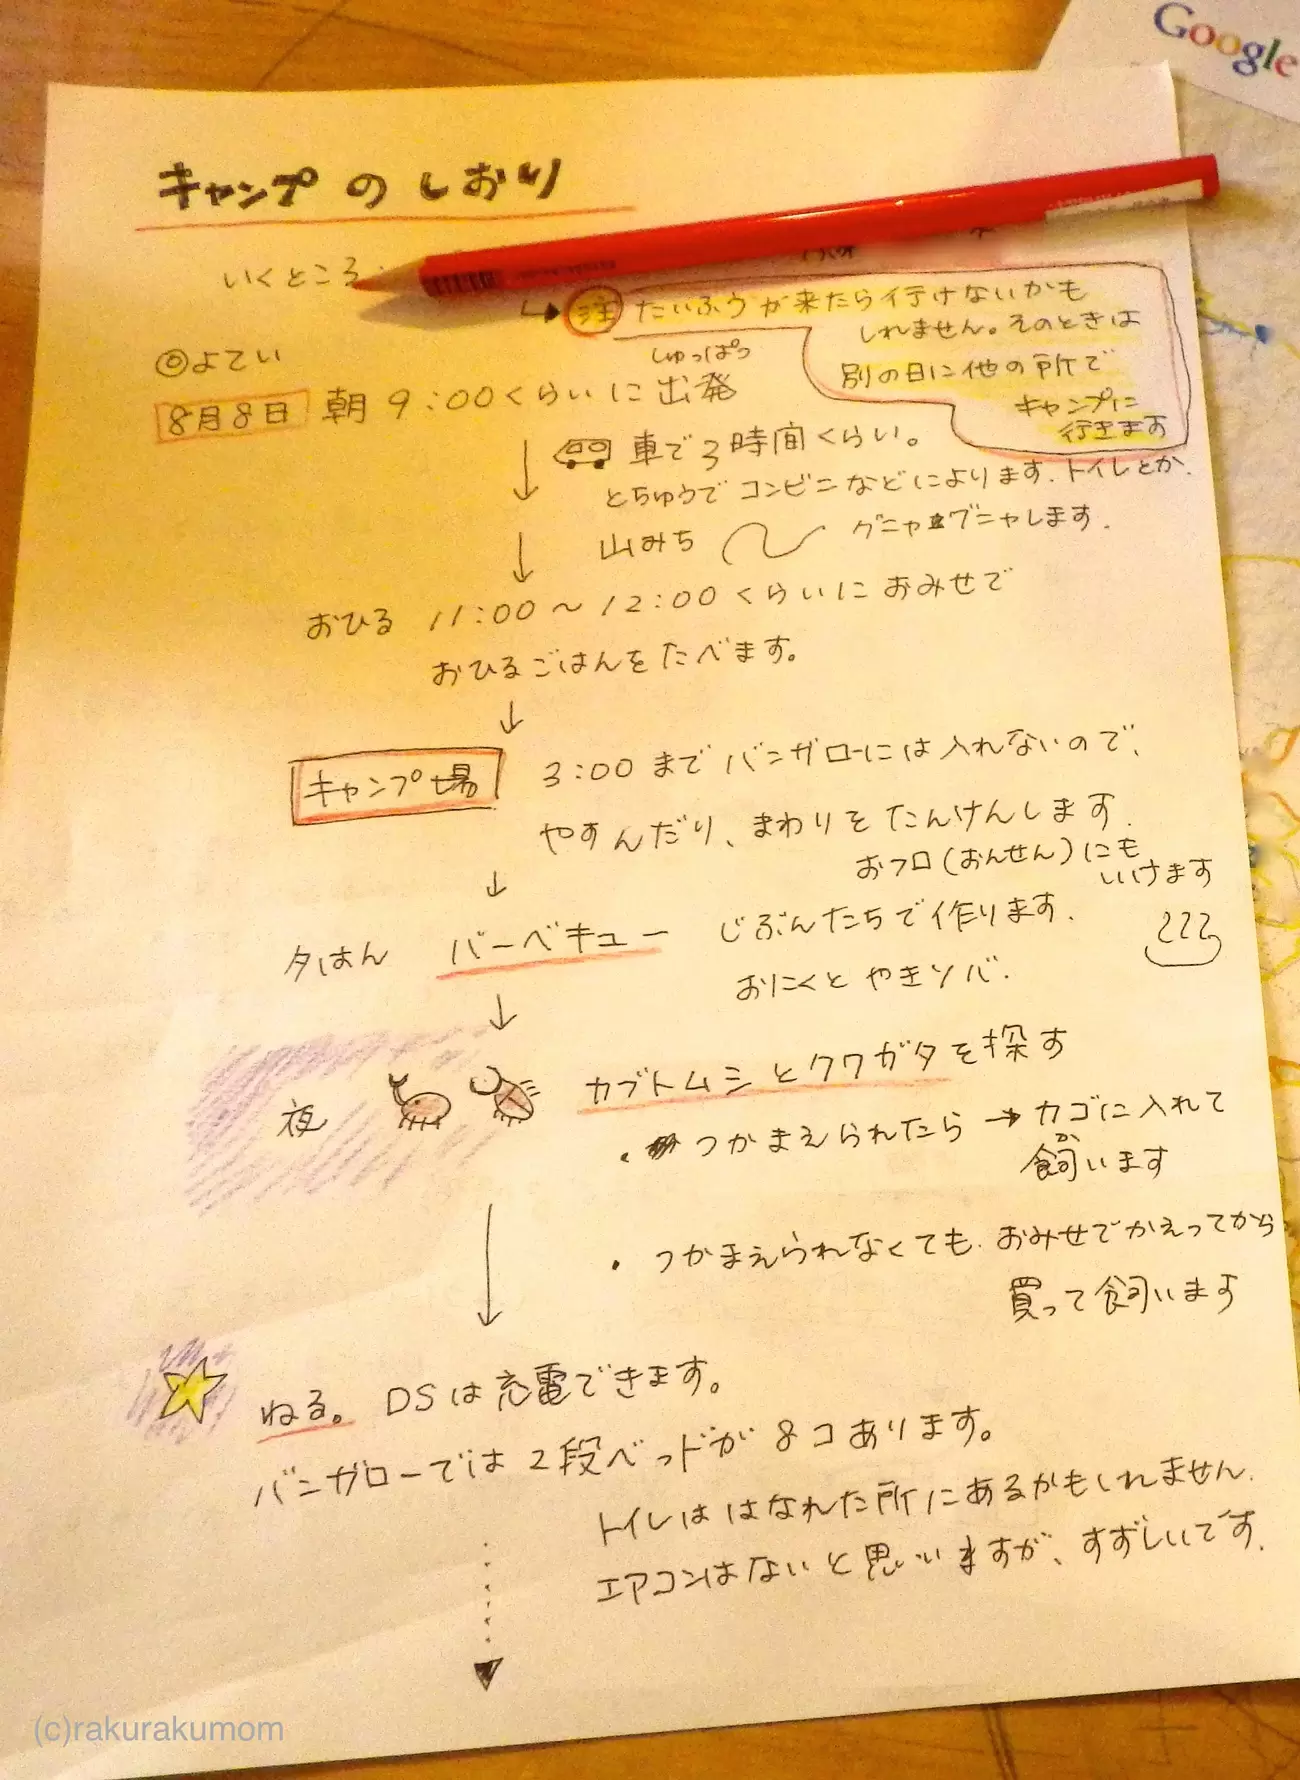 Google
キャンプのしおり
いくところ
注 たいふうが来たら行けないかも
しれません。そのときは
別の日に他の所で
キャンプに
行きます
◎よてい
しゅっぱつ
8月8日 朝 9:00くらいに出発
車で3時間くらい。
とちゅうでコンビニなどによります.トイレとか.
山みち グニャグニャします.
おひる 11:00〜12:00くらいにおみせで
おひるごはんをたべます。
キャンプ場 3:00までバンガローには入れないので、
やすんだり、まわりをたんけんします.
おフロ(おんせん)にも
いけます
夕はん バーベキュー じぶんたちで作ります.
おにくとやきソバ.
夜 カブトムシとクワガタを探す
・つかまえられたら→カゴに入れて
か
飼います
・つかまえられなくても.おみせでかえってから
買って飼います
ねる。DSは充電できます。
バンガローでは2段ベッドが8コあります。
トイレははなれた所にあるかもしれません.
エアコンはないと思いますが、すずしいです.
(c)rakurakumom